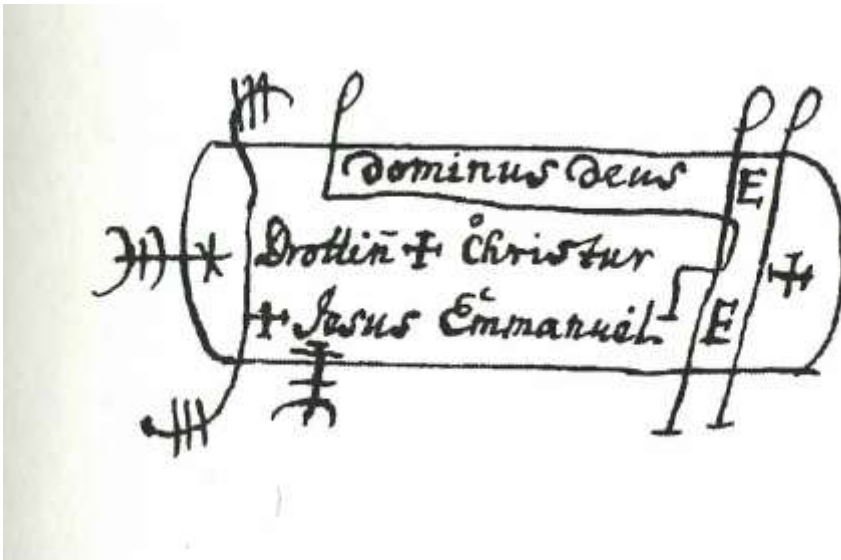 Dominus Deus E
Drottin̄ ✝ Christur
✝ Jesus Emmanuel E